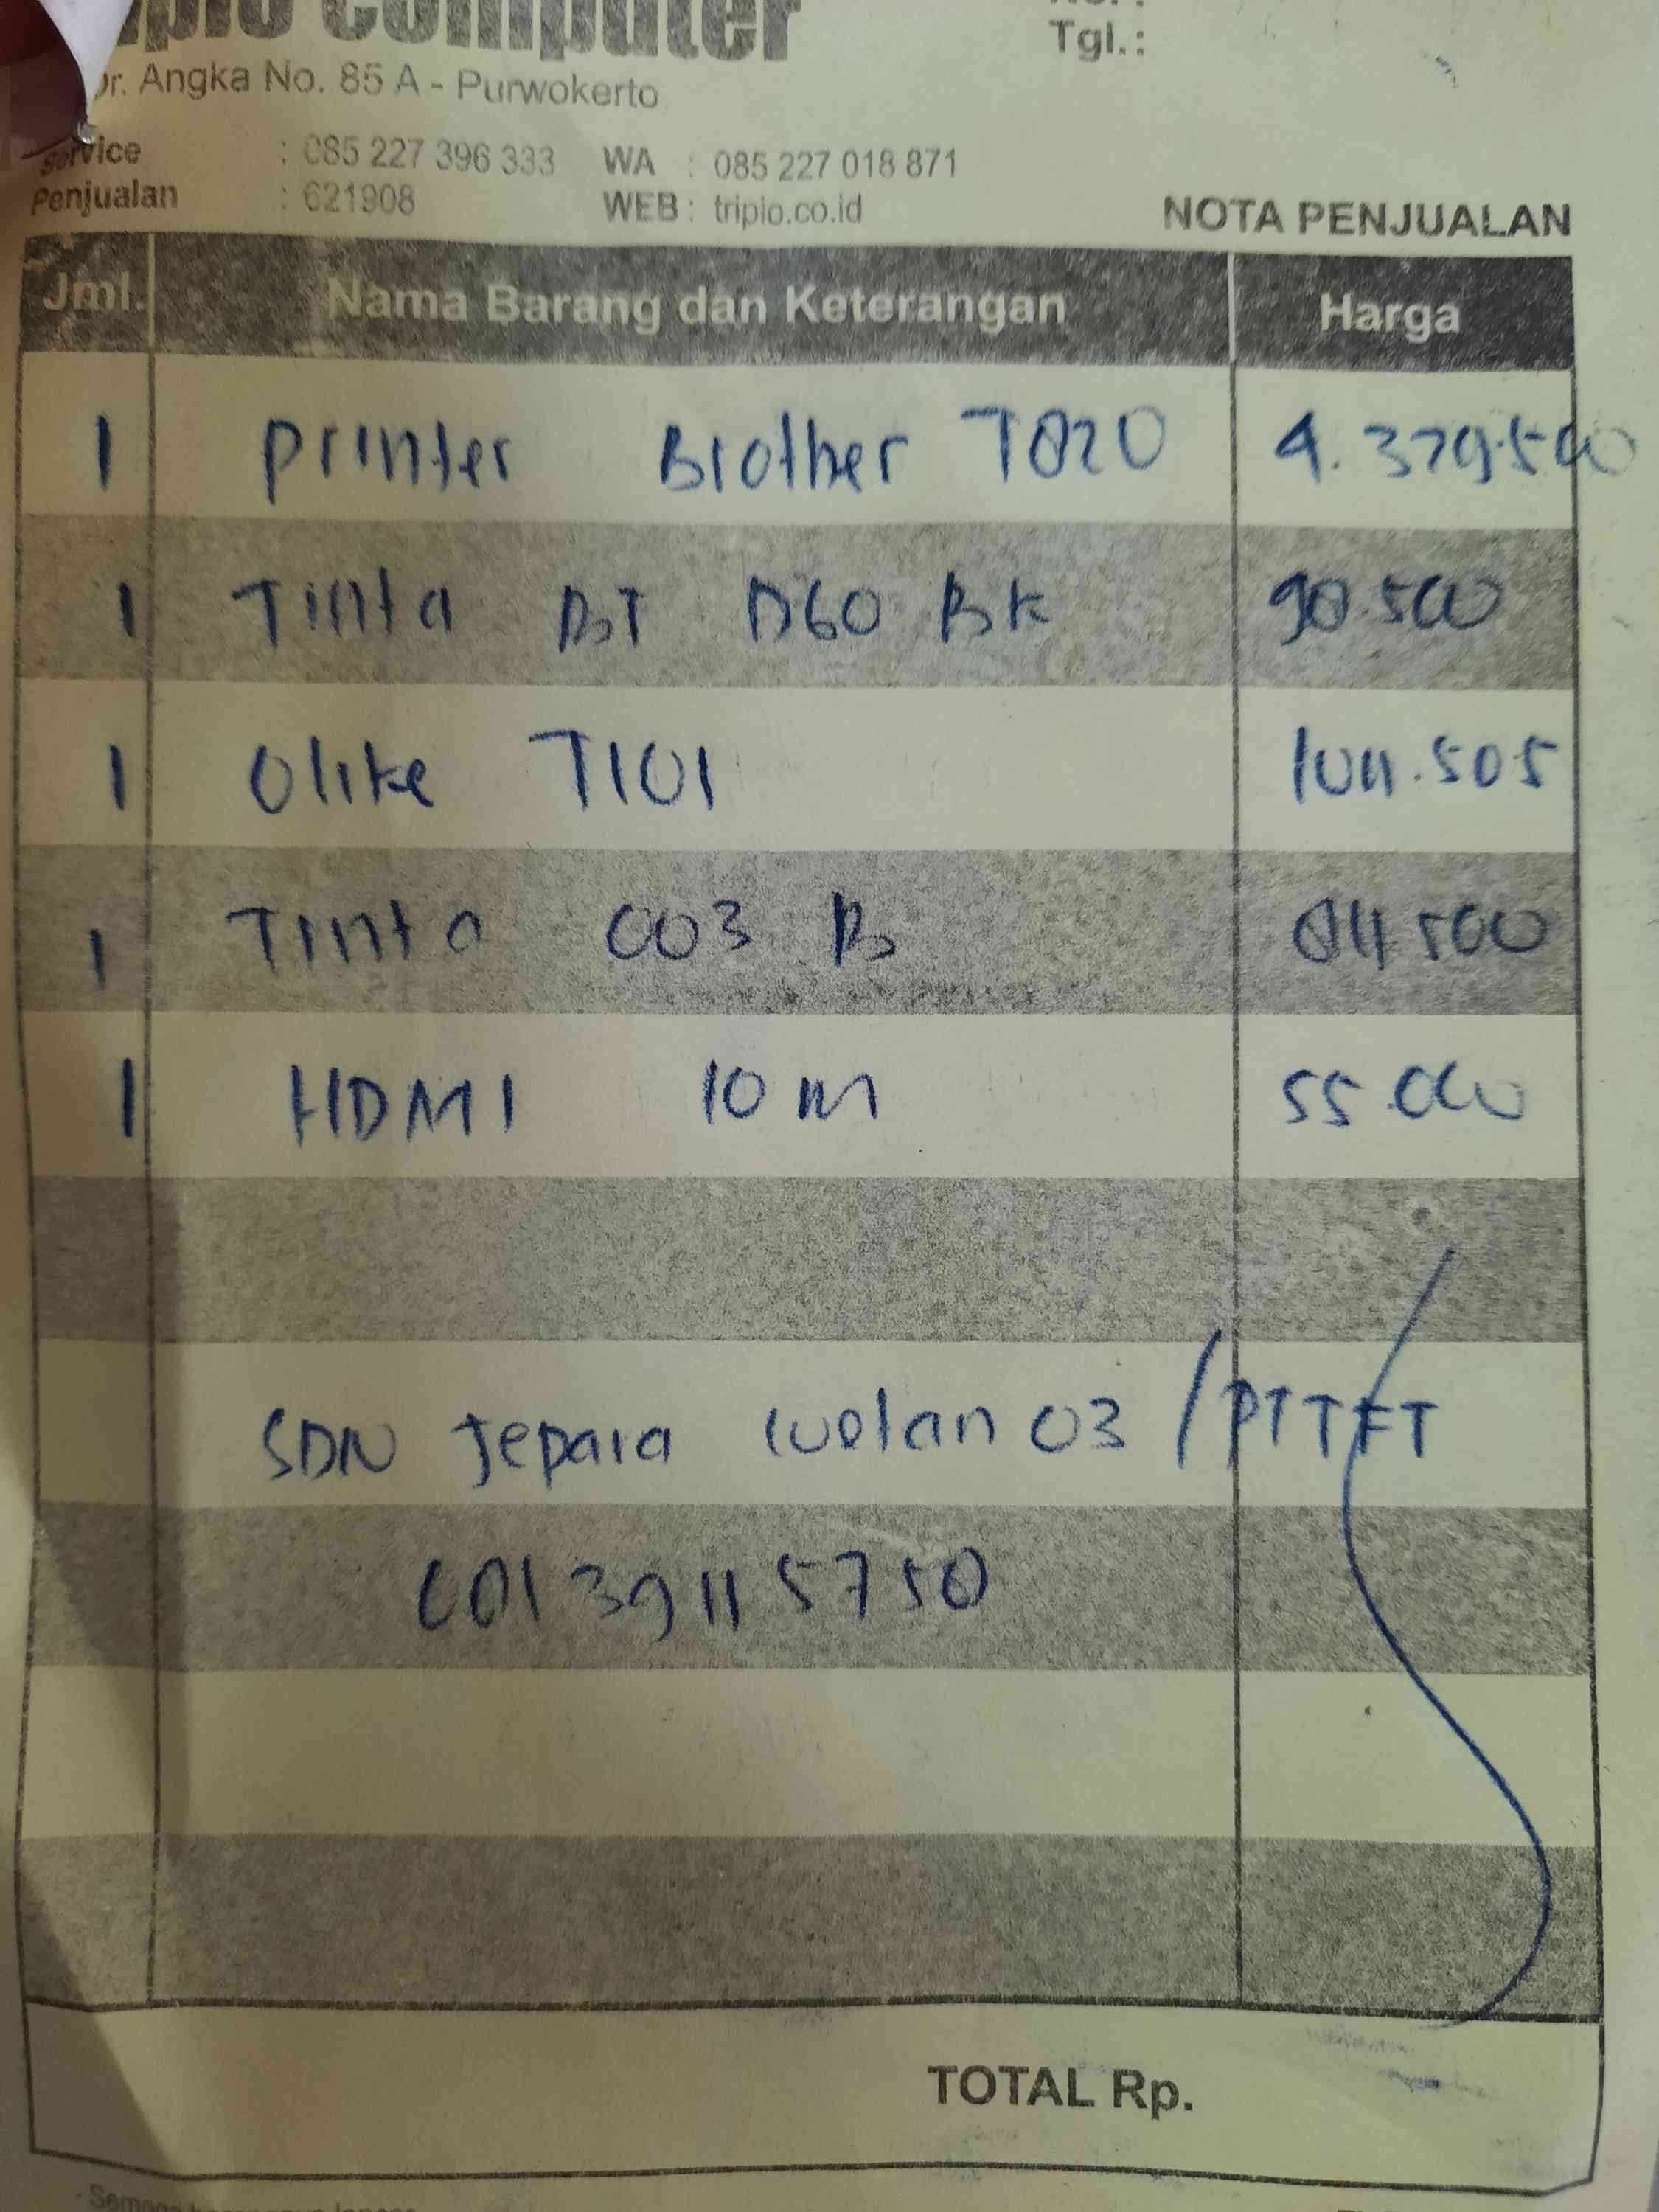 Computer
Dr. Angka No. 85 A - Purwokerto
Tgl.:
Service : 085 227 396 333 WA : 085 227 018 871
Penjualan : 621908 WEB : triplo.co.id
NOTA PENJUALAN
Jml. Nama Barang dan Keterangan Harga
1 Printer Brother T820 4.379.500
1 Tinta BT D60 BK 90.500
1 Olike T101 104.505
1 Tinta 003 B 84.500
1 HDMI 10 M 55.000
SDN Jepara Wetan 03 / PTTFT
TOTAL Rp.